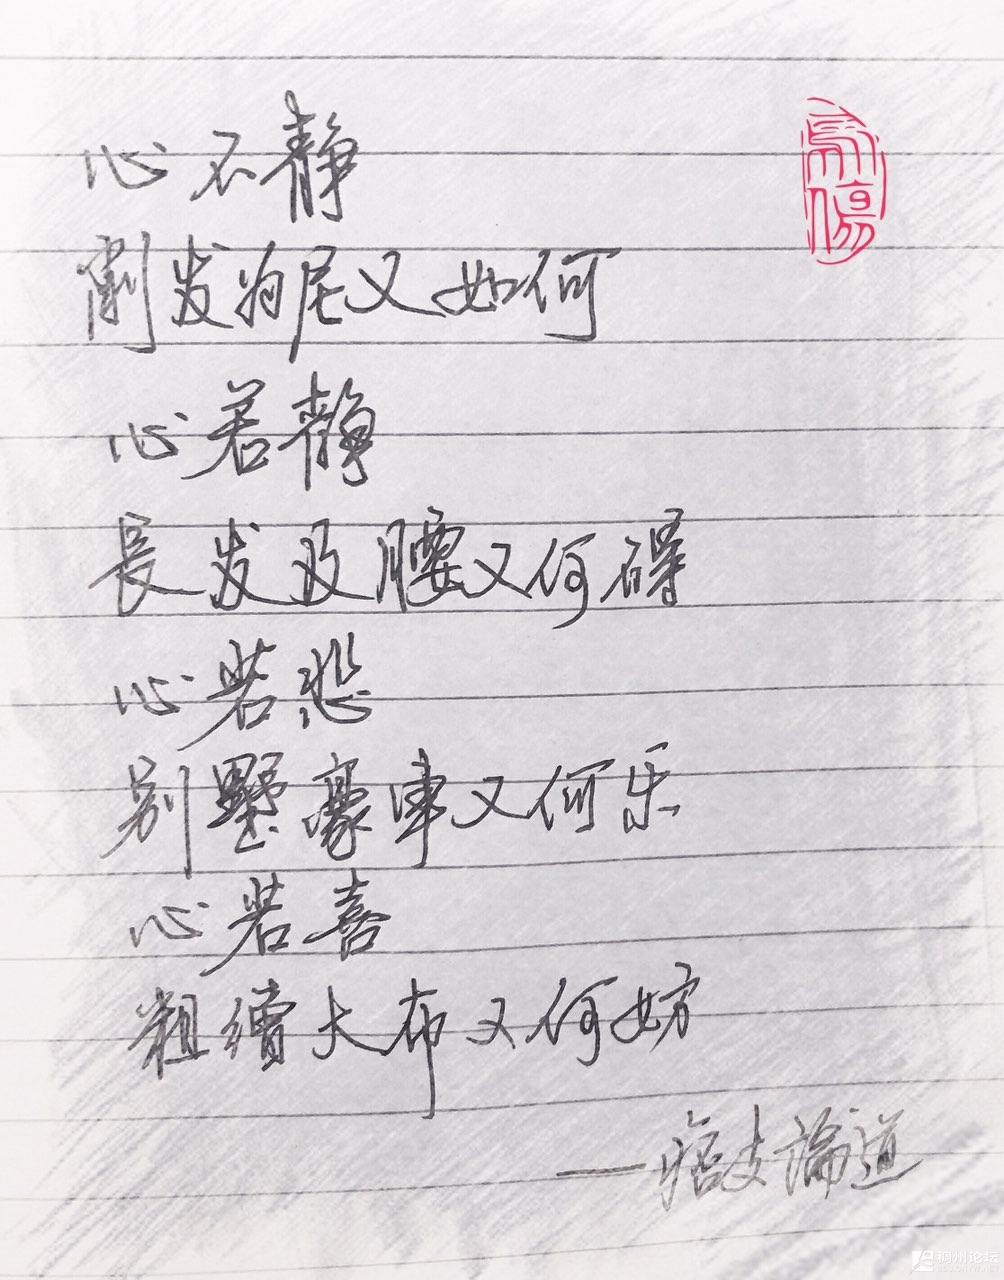 心不静
剃发为尼又如何
心若静
長发及腰又何碍
心若悲
别墅豪車又何乐
心若喜
粗缯大布又何妨
支論道
稠州论坛